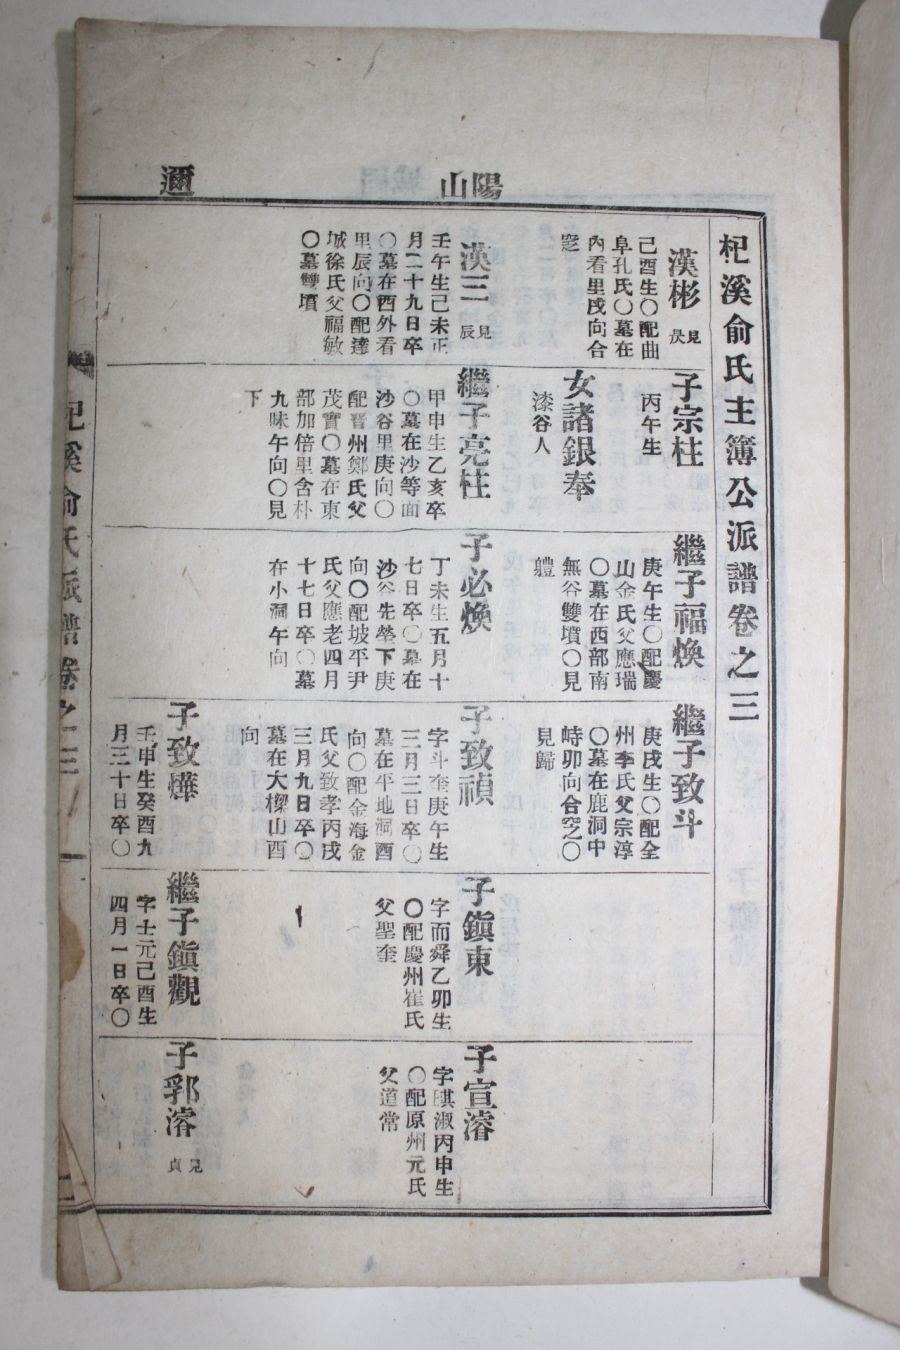 陽山
邇
杞溪俞氏主簿公派譜卷之三
漢彬 見
己酉生〇配曲
阜孔氏〇墓在
內看里戌向合
窆
漢三 見辰
壬午生己未正
月二十九日卒
〇墓在西外看
里辰向〇配達
城徐氏父福敏
〇墓雙墳
子宗柱
丙午生
女諸銀奉
漆谷人
繼子亮柱
甲申生乙亥卒
〇墓在沙等面
沙谷里庚向〇
配晋州鄭氏父
茂實〇墓在東
部加倍里含朴
九味午向〇見
下
繼子福煥
庚午生〇配慶
山金氏父應瑞
〇墓在西部南
無谷雙墳〇見
軆
子必煥
丁未生五月十
七日卒〇墓在
沙谷先塋下庚
向〇配坡平尹
氏父應老四月
十七日卒〇墓
在小洞午向
繼子致斗
庚戌生〇配全
州李氏父宗淳
〇墓在鹿洞中
峙卯向合窆〇
見歸
子致禎
字斗奎庚午生
三月三日卒〇
墓在平地洞酉
向〇配金海金
氏父致孝丙戌
三月九日卒〇
墓在大樑山酉
向
子致燁
壬申生癸酉九
月三十日卒〇
子鎭東
字而舜乙卯生
〇配慶州崔氏
父聖奎
繼子鎭觀
字士元己酉生
四月一日卒〇
子宣濬
字琪淑丙申生
〇配原州元氏
父道常
子郛濬 見貞
杞溪俞氏派譜卷之三